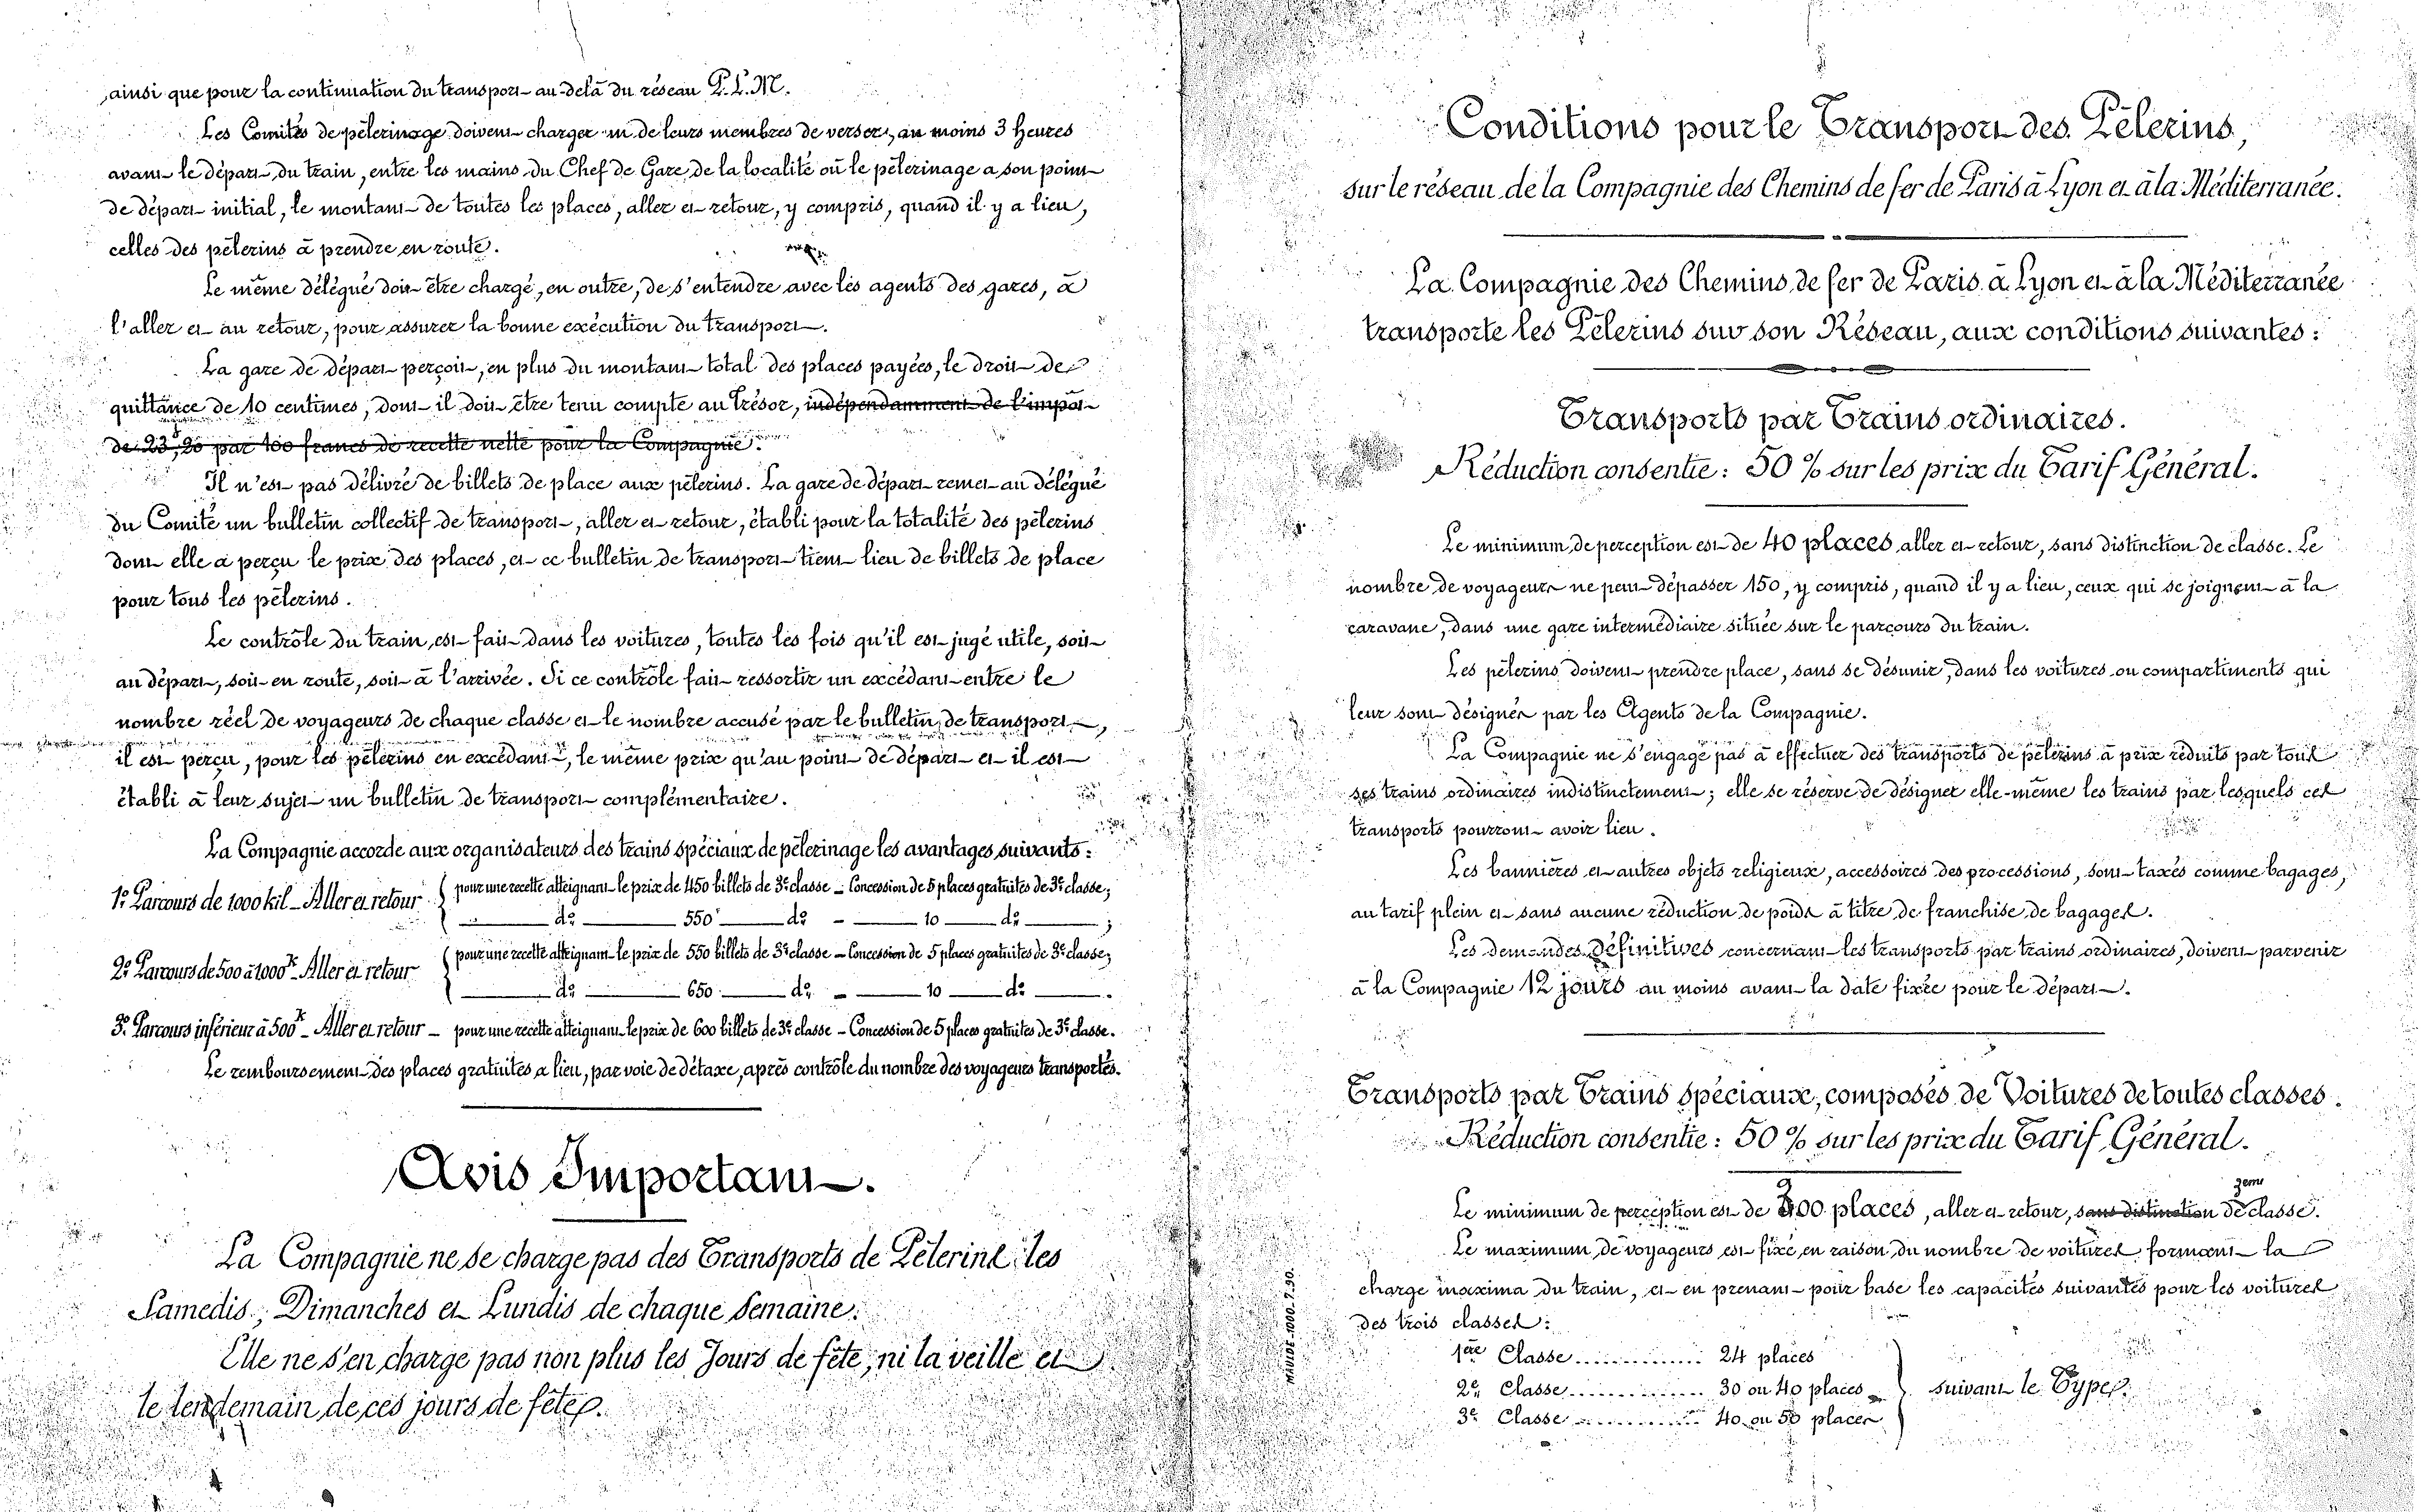 ainsi que pour la continuation du transport au-delà du réseau P.L.M.
Les Comités de pèlerinage doivent charger un de leurs membres de verser, au moins 3 heures
avant le départ du train, entre les mains du Chef de Gare de la localité où le pèlerinage a son point
de départ initial, le montant de toutes les places, aller et retour, y compris, quand il y a lieu,
celles des pèlerins à prendre en route.
Le même délégué doit être chargé, en outre, de s'entendre avec les agents des gares, à
l'aller et au retour, pour assurer la bonne exécution du transport.
La gare de départ perçoit, en plus du montant total des places payées, le droit de
quittance de 10 centimes, dont il doit être tenu compte au Trésor, indépendamment de l'impôt
de 23f,20 par 100 francs de recette nette pour la Compagnie.
Il n'est pas délivré de billets de place aux pèlerins. La gare de départ remet au délégué
du Comité un bulletin collectif de transport, aller et retour, établi pour la totalité des pèlerins
dont elle a perçu le prix des places, et ce bulletin de transport tient lieu de billets de place
pour tous les pèlerins.
Le contrôle du train est fait dans les voitures, toutes les fois qu'il est jugé utile, soit
au départ, soit en route, soit à l'arrivée. Si ce contrôle fait ressortir un excédant entre le
nombre réel de voyageurs de chaque classe et le nombre accusé par le bulletin de transport,
il est perçu, pour les pèlerins en excédant, le même prix qu'au point de départ et il est
établi à leur sujet un bulletin de transport complémentaire.
La Compagnie accorde aux organisateurs des trains spéciaux de pèlerinage les avantages suivants:
1º Parcours de 1000 kil - Aller et retour { pour une recette atteignant le prix de 450 billets de 3e classe - Concession de 5 places gratuites de 3e classe;
dº 550 dº - 10 dº ;
2º Parcours de 500 à 1000k - Aller et retour { pour une recette atteignant le prix de 550 billets de 3e classe - Concession de 5 places gratuites de 3e classe;
dº 650 dº - 10 dº .
3º Parcours inférieur à 500k - Aller et retour - pour une recette atteignant le prix de 600 billets de 3e classe - Concession de 5 places gratuites de 3e classe.
Le remboursement des places gratuites a lieu, par voie de détaxe, après contrôle du nombre des voyageurs transportés.
Avis Important.
La Compagnie ne se charge pas des Transports de Pèlerins les
Samedis, Dimanches et Lundis de chaque semaine.
Elle ne s'en charge pas non plus les Jours de fête, ni la veille et
le lendemain de ces jours de fêtes.
Conditions pour le Transport des Pèlerins,
sur le réseau de la Compagnie des Chemins de fer de Paris à Lyon et à la Méditerranée.
La Compagnie des Chemins de fer de Paris à Lyon et à la Méditerranée
transporte les Pèlerins sur son Réseau, aux conditions suivantes:
Transports par Trains ordinaires.
Réduction consentie: 50 % sur les prix du Tarif Général.
Le minimum de perception est de 40 places aller et retour, sans distinction de classe. Le
nombre de voyageurs ne peut dépasser 150, y compris, quand il y a lieu, ceux qui se joignent à la
caravane, dans une gare intermédiaire située sur le parcours du train.
Les pèlerins doivent prendre place, sans se désunir, dans les voitures ou compartiments qui
leur sont désignés par les Agents de la Compagnie.
La Compagnie ne s'engage pas à effectuer des transports de pèlerins à prix réduits par tous
ses trains ordinaires indistinctement; elle se réserve de désigner elle-même les trains par lesquels ces
transports pourront avoir lieu.
Les bannières et autres objets religieux, accessoires des processions, sont taxés comme bagages,
au tarif plein et sans aucune réduction de poids à titre de franchise de bagages.
Les demandes définitives concernant les transports par trains ordinaires, doivent parvenir
à la Compagnie 12 jours au moins avant la date fixée pour le départ.
Transports par Trains spéciaux, composés de Voitures de toutes classes.
Réduction consentie: 50 % sur les prix du Tarif Général.
Le minimum de perception est de 300 places, aller et retour, sans distinction de 3eme classe.
Le maximum de voyageurs est fixé en raison du nombre de voitures formant la
charge maxima du train, et en prenant pour base les capacités suivantes pour les voitures
des trois classes:
1ère Classe .............. 24 places
2e Classe .............. 30 ou 40 places } suivant le Type.
3e Classe .............. 40 ou 50 places
MAULDE-1000-7.90.